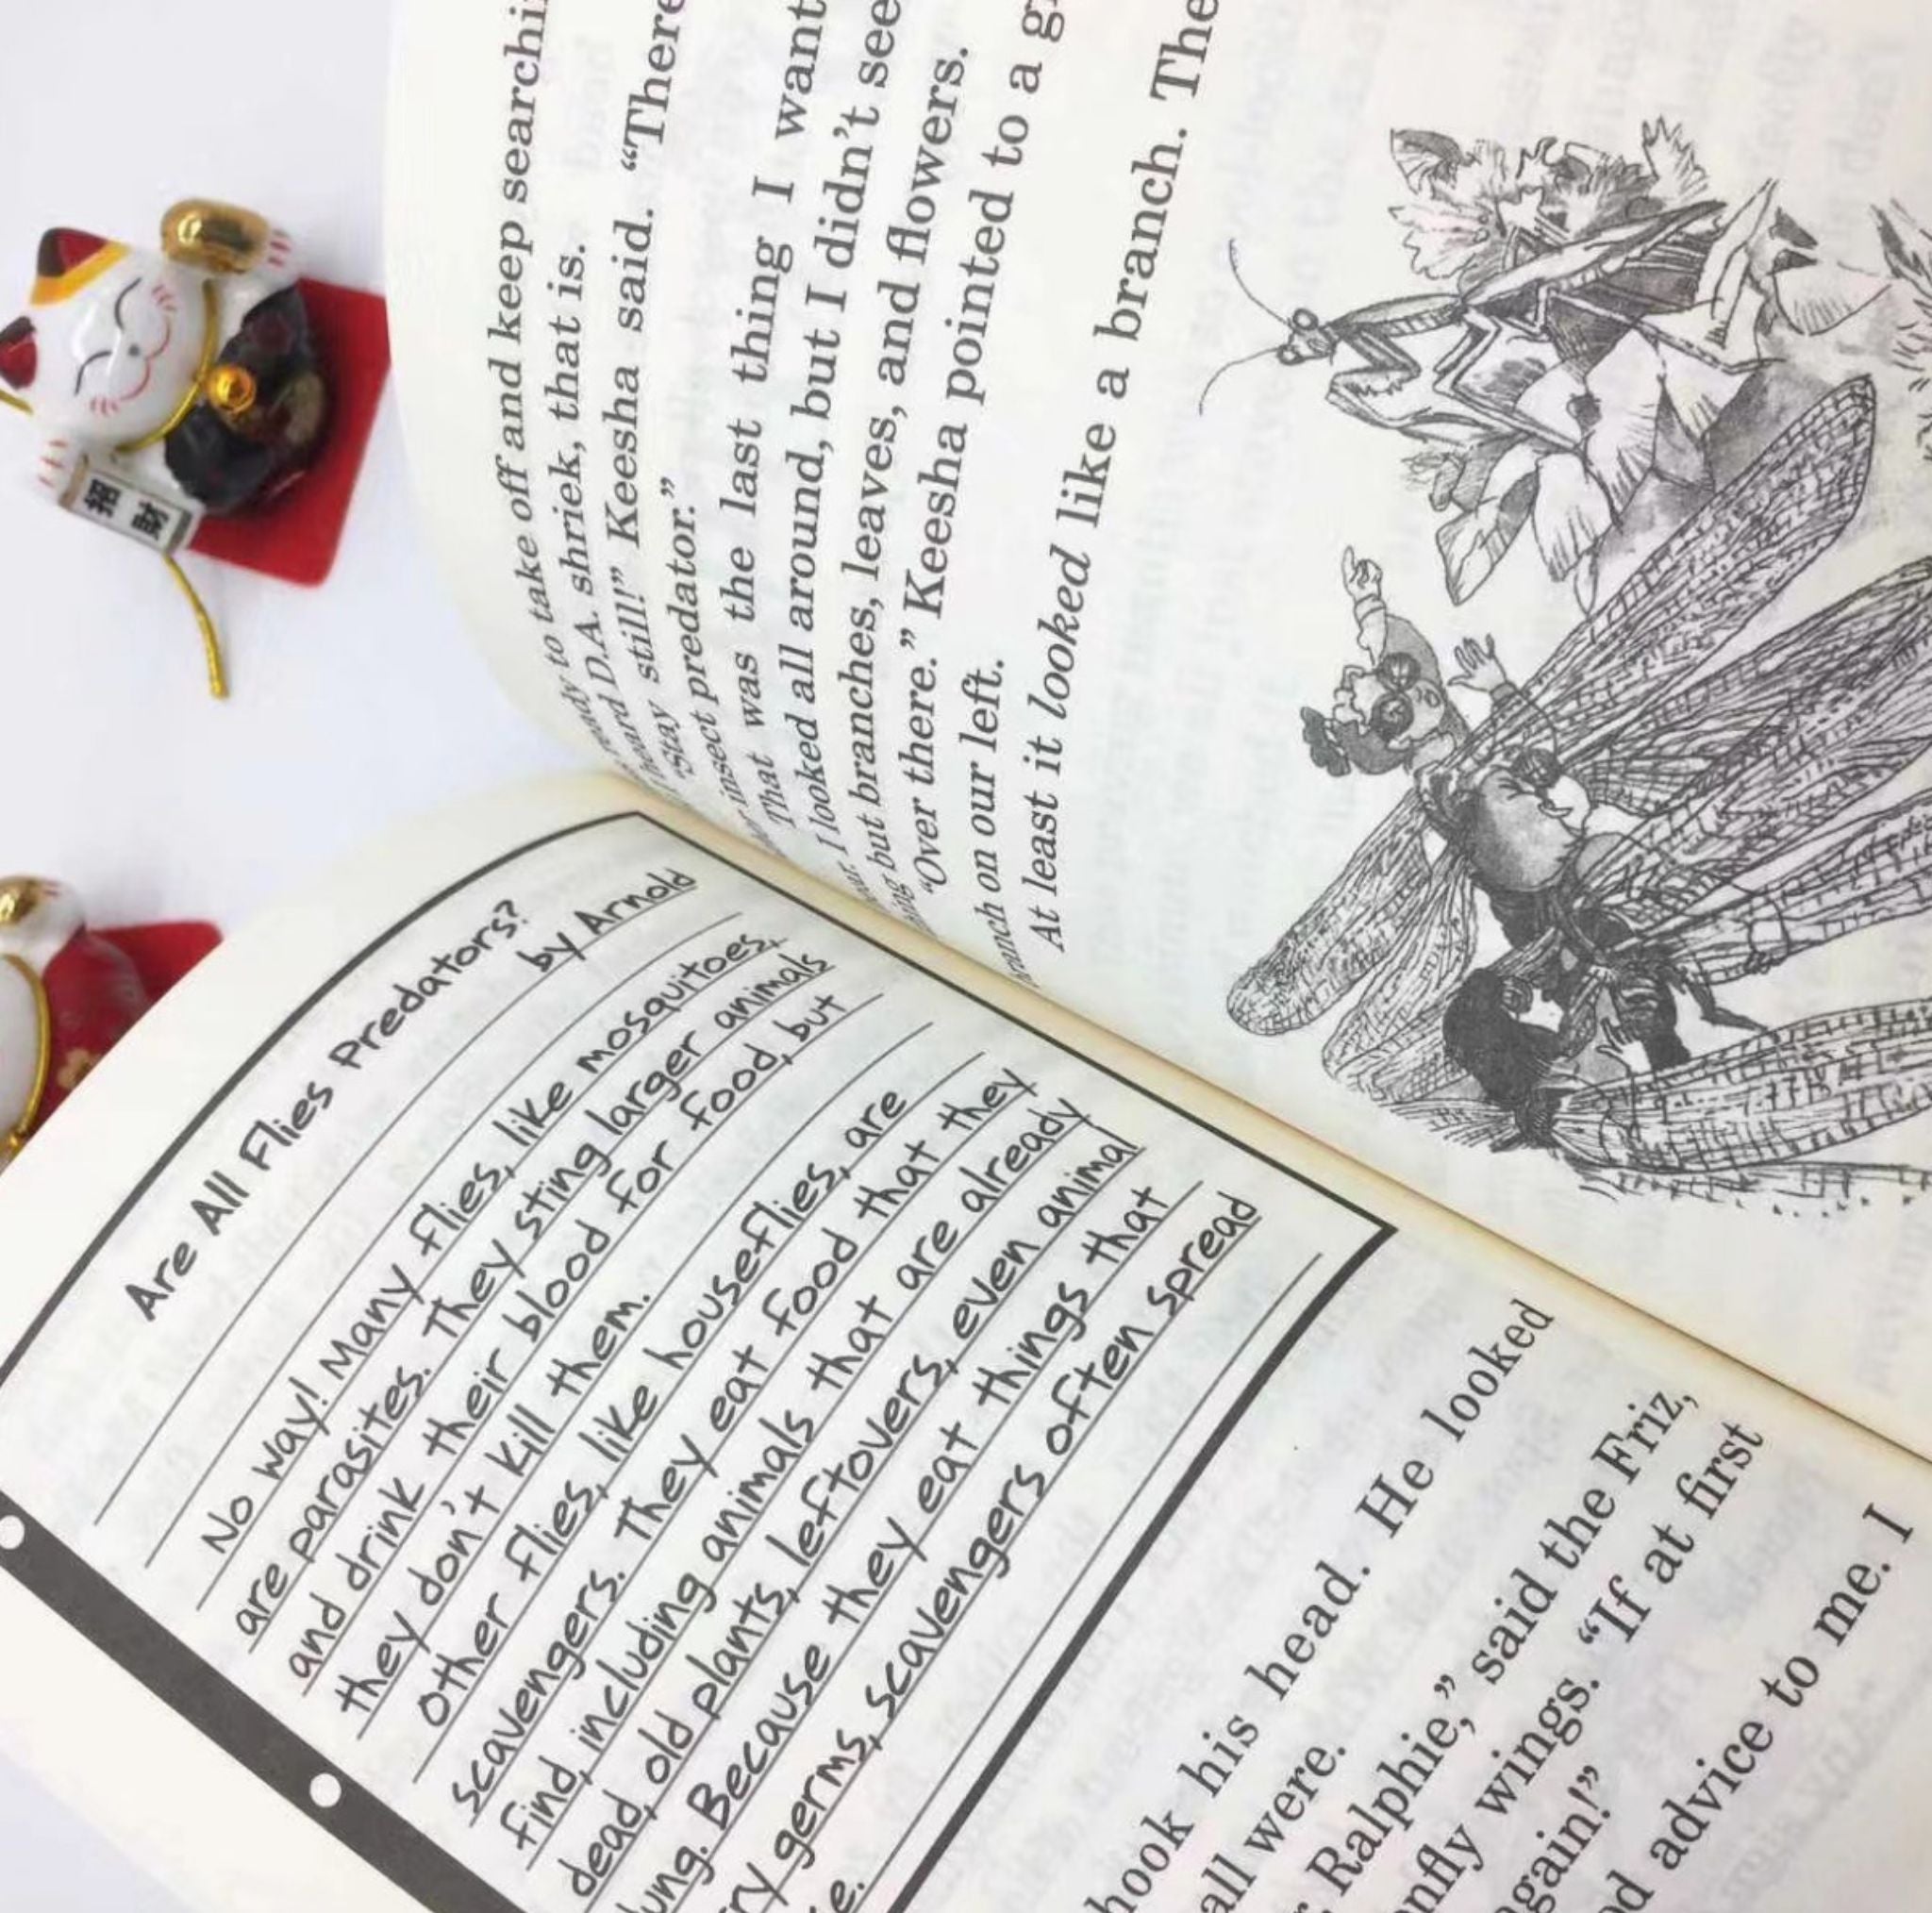 Are All Flies Predators?
by Arnold
No way! Many flies, like mosquitoes,
are parasites. They sting larger animals
and drink their blood for food, but
they don't kill them.
Other flies, like houseflies, are
scavengers. They eat food that they
find, including animals that are already
dead, old plants, leftovers, even animal
Because they eat things that
germs, scavengers often spread
his head. He looked
all were.
Ralphie," said the Friz,
wings. "If at first
advice to me. I
to take off and keep
D.A. shriek, that is.
still!" Keesha said. "There
"Stay
insect predator."
That was the last thing I want
I looked all around, but I didn't see
but branches, leaves, and flowers.
"Over there." Keesha pointed to a
on our left.
At least it looked like a branch. The
招財